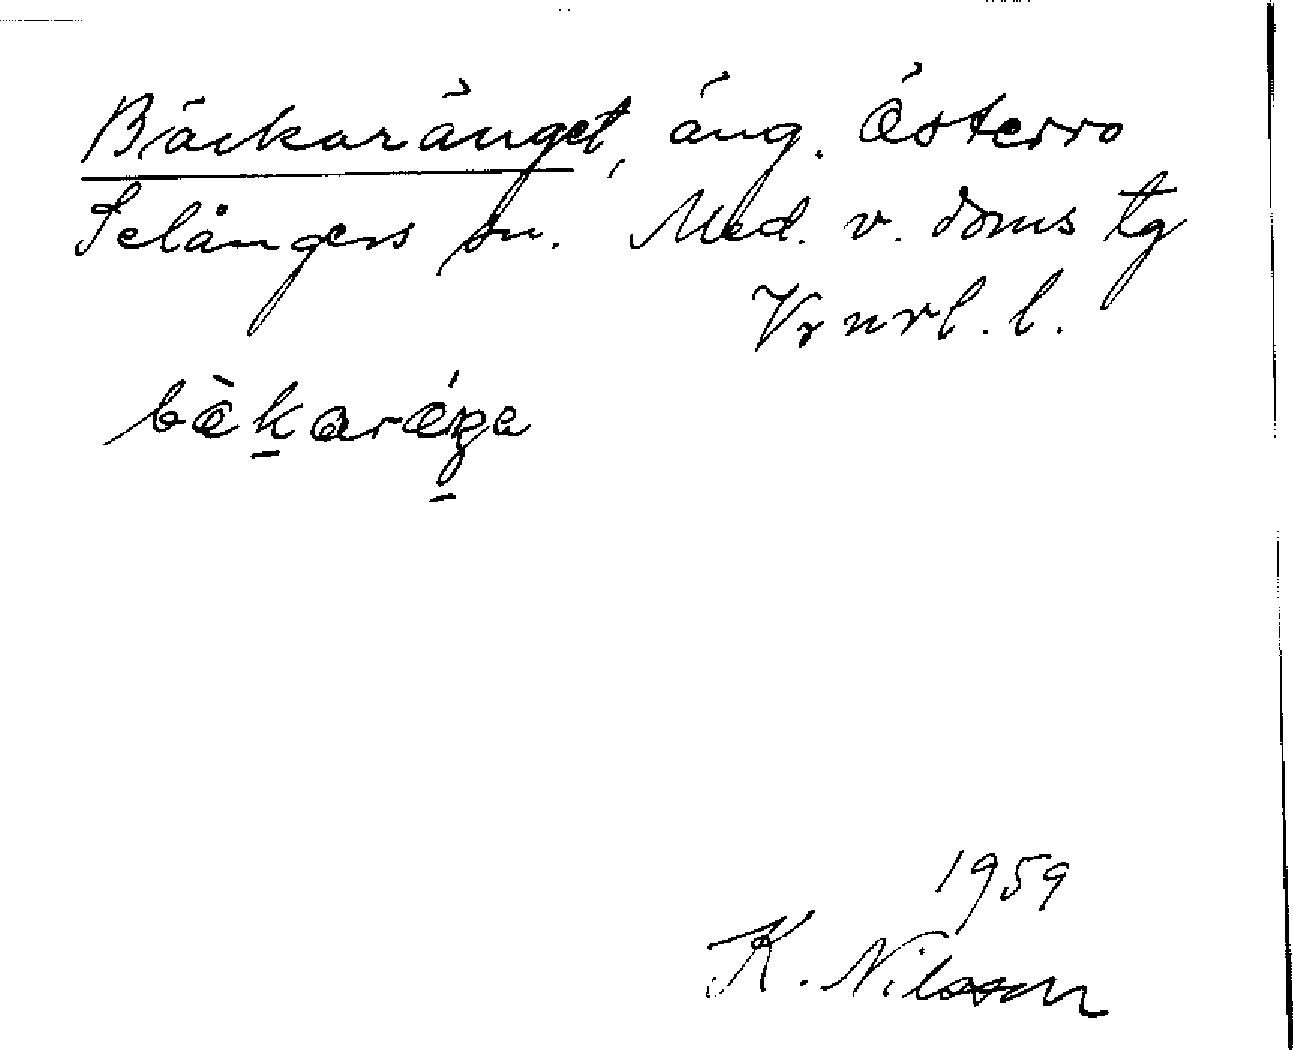 Bäckaränget, äng. Österro
Selångers sn. Med. v. doms tg
Vr nrl. l.
bäkaräŋa
1959
K. Nilsson